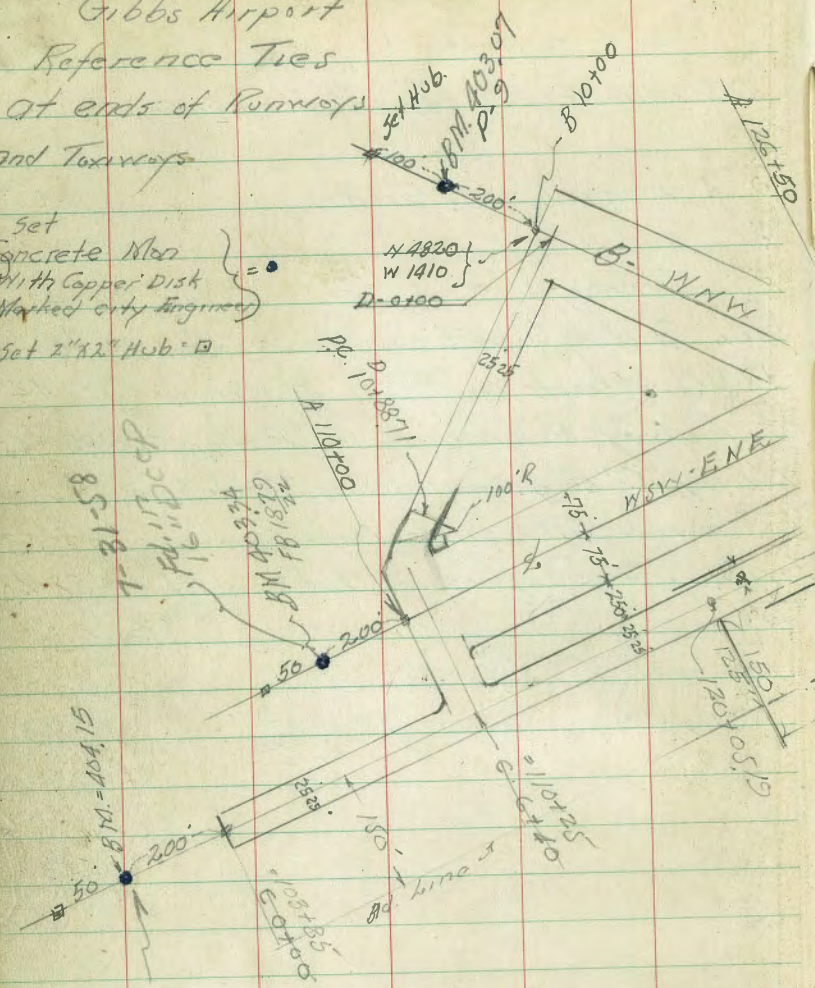 Gibbs Airport
Reference Ties
at ends of Runways
and Taxiways
Set
Concrete Mon
With Copper Disk
Marked City Engineer
= ●
Set 2"x2" Hub = ⊡
Set Hub.
100'
BM. 403.07
P-9
200'
B 10+00
A 126+50
N 4820
W 1410
D-0+00
B- WNW
25 25
P.C. D
10+88.71
A 110+00
100'R
WSW-ENE
75' + 75' + 250' 25 25
BM 403.34
200'
50
7-31-58
150'
125'
120+05.19
BM = 404.15
200'
50
25 25
150'
110+25
6+40
103+85
0+00
Line